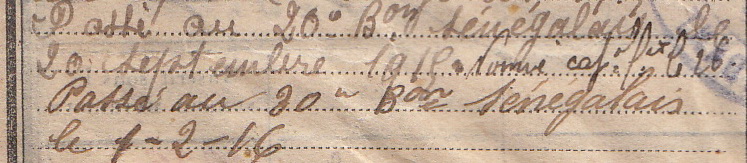 Passé au 20e Bon Sénégalais le
20 Septembre 1915. nommé le 26.
Passé au 20e Bon Sénégalais
le 1-2-16